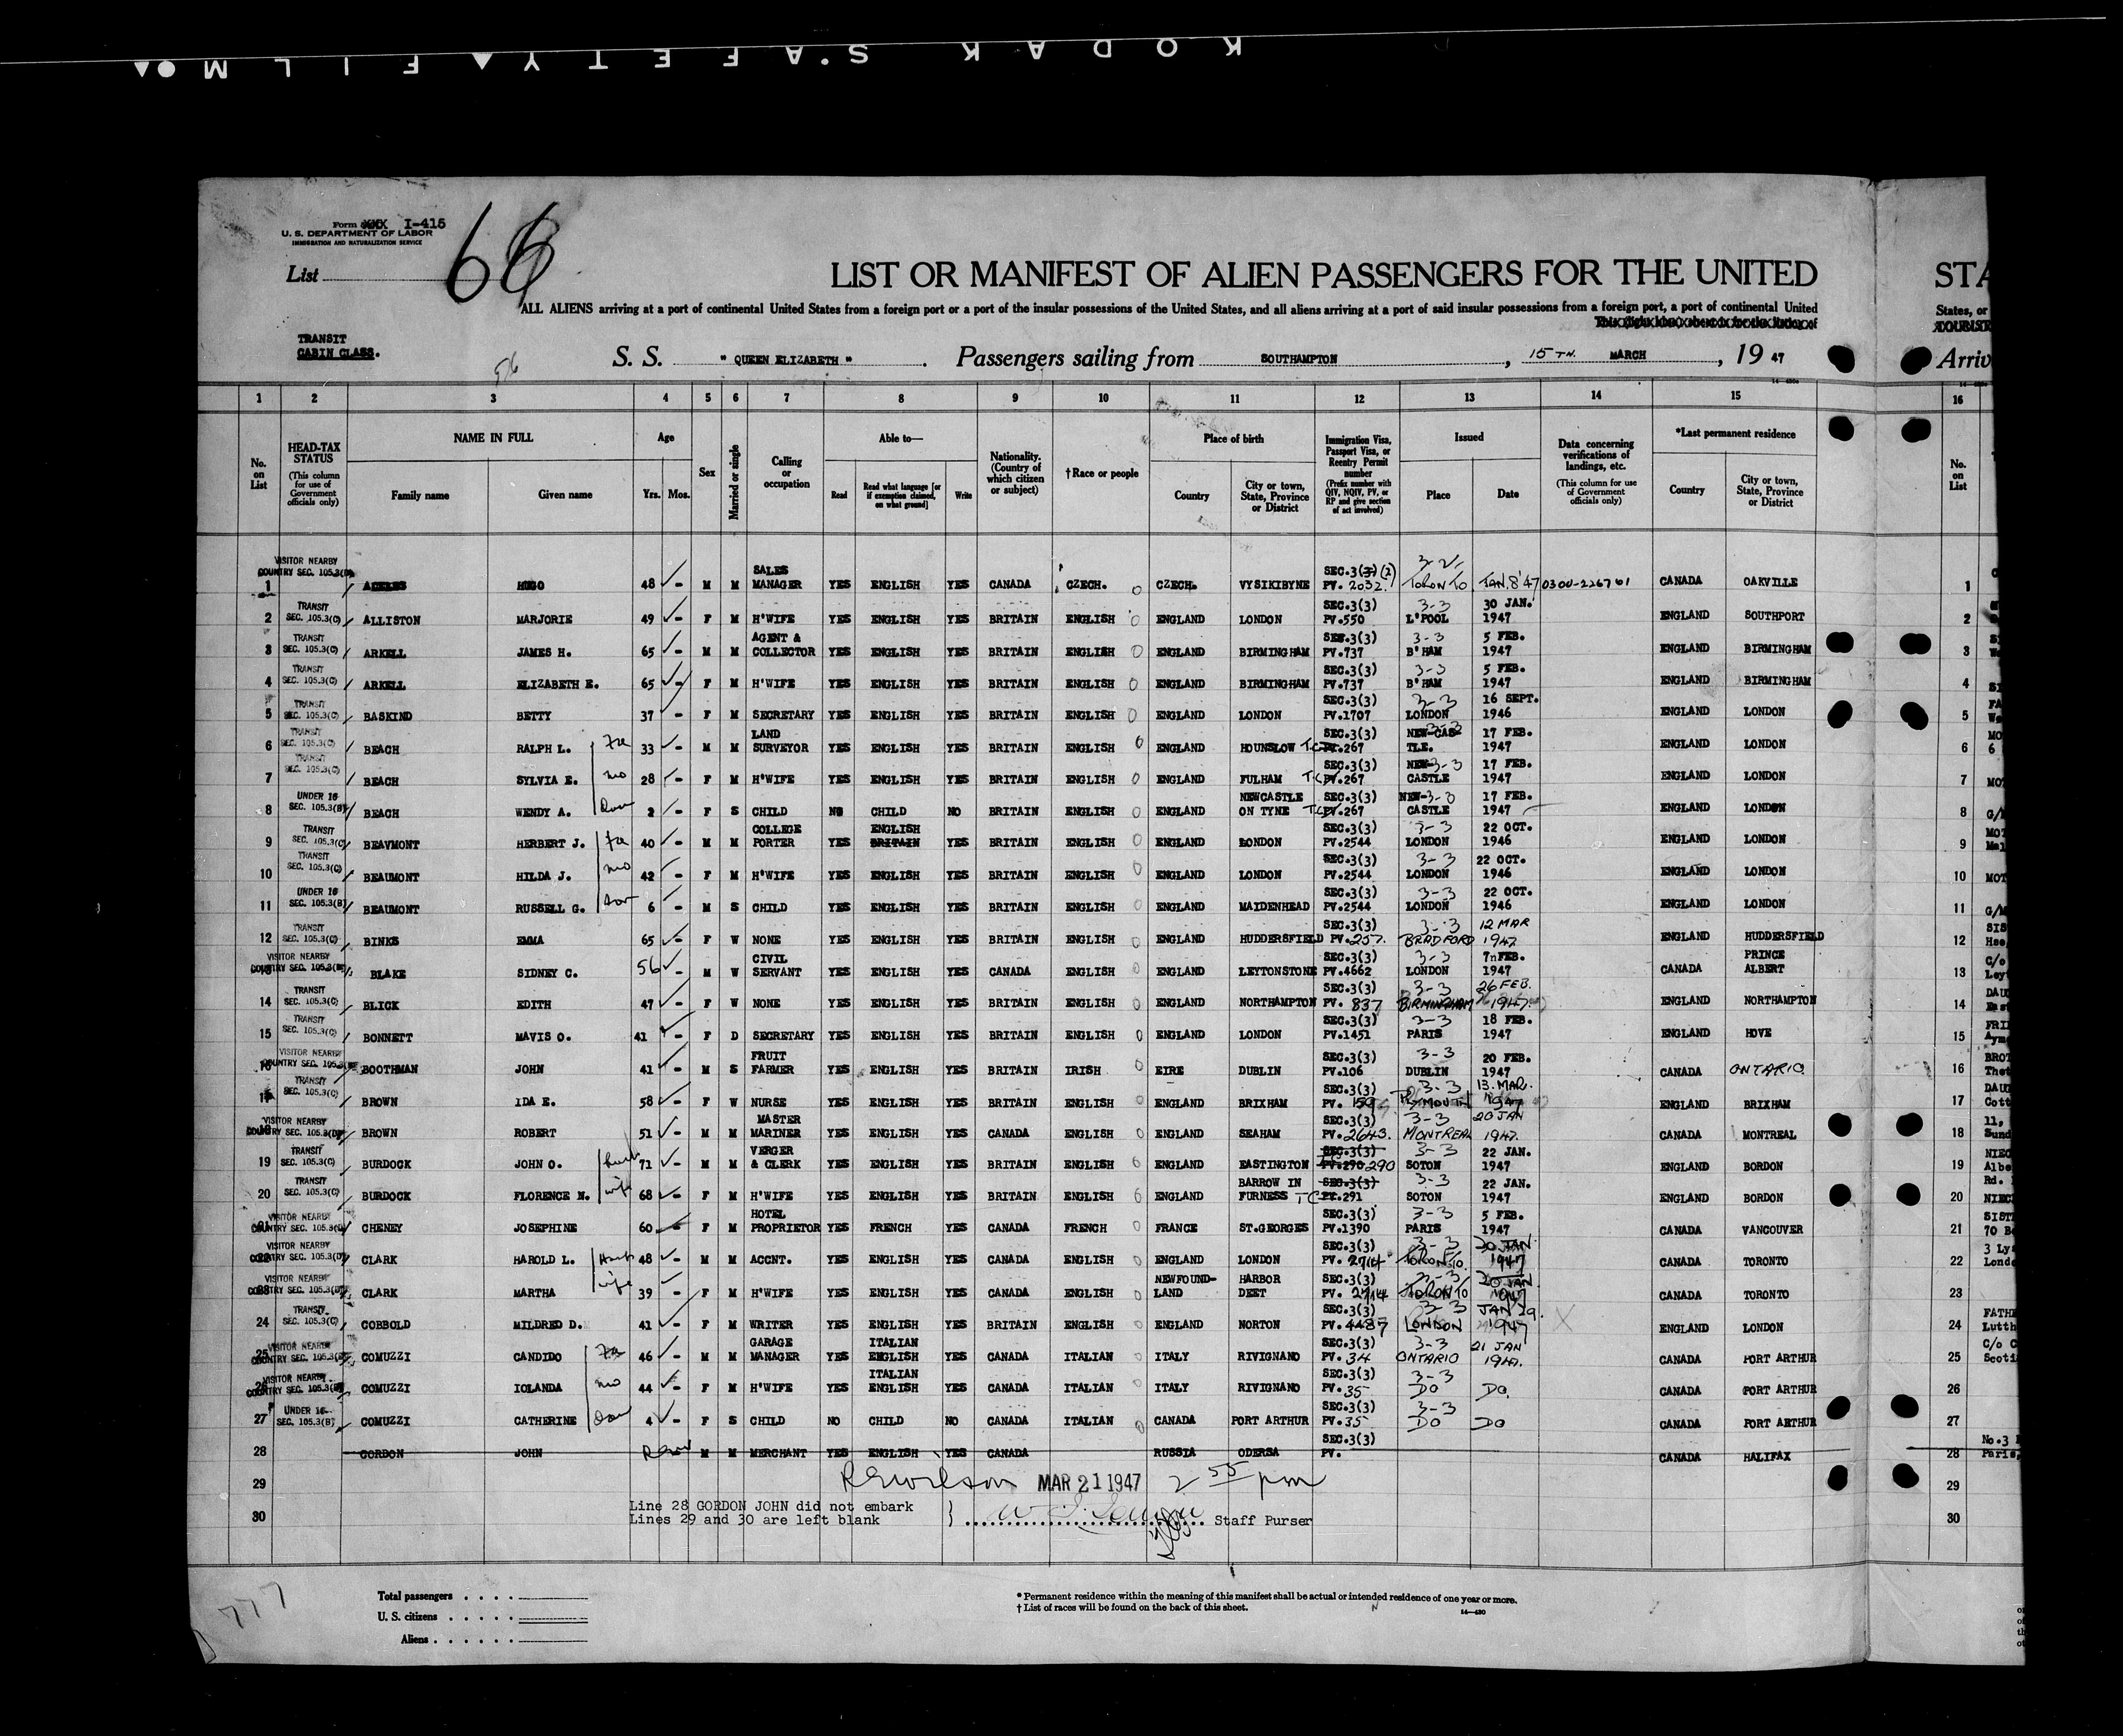 KODAK S.AFETY FILM
Form XXX I-415
U. S. DEPARTMENT OF LABOR
IMMIGRATION AND NATURALIZATION SERVICE
List 66
LIST OR MANIFEST OF ALIEN PASSENGERS FOR THE UNITED
STA
ALL ALIENS arriving at a port of continental United States from a foreign port or a port of the insular possessions of the United States, and all aliens arriving at a port of said insular possessions from a foreign port, a port of continental United
States, or
TRANSIT
CABIN CLASS.
S. S. " QUEEN ELIZABETH " . Passengers sailing from SOUTHAMPTON , 15 TH. MARCH , 19 47
Arriv
1 2 3 4 5 6 7 8 9 10 11 12 13 14 15 16
No. on List
HEAD-TAX STATUS (This column for use of Government officials only)
NAME IN FULL Family name Given name
Age Yrs. Mos.
Sex
Married or single
Calling or occupation
Able to— Read Read what language [or if exemption claimed, on what ground] Write
Nationality. (Country of which citizen or subject)
†Race or people
Place of birth Country City or town, State, Province or District
Immigration Visa, Passport Visa, or Reentry Permit number (Prefix number with QIV, NQIV, PV, or RP and give section of act involved)
Issued Place Date
Data concerning verifications of landings, etc. (This column for use of Government officials only)
*Last permanent residence Country City or town, State, Province or District
No. on List
1 VISITOR NEARBY COUNTRY SEC. 105.3(D) HUGO 48 M M SALES MANAGER YES ENGLISH YES CANADA CZECH. CZECH. VYSIKIBYNE SEC.3(3) (2) PV. 2032 TORONTO JAN. 8 '47 0300-226761 CANADA OAKVILLE 1
2 TRANSIT SEC. 105.3(C) ALLISTON MARJORIE 49 F M H'WIFE YES ENGLISH YES BRITAIN ENGLISH ENGLAND LONDON SEC.3(3) PV.550 3-3 L'POOL 30 JAN. 1947 ENGLAND SOUTHPORT 2
3 TRANSIT SEC. 105.3(C) ARKELL JAMES H. 65 M M AGENT & COLLECTOR YES ENGLISH YES BRITAIN ENGLISH ENGLAND BIRMINGHAM SEC.3(3) PV.737 3-3 B'HAM 5 FEB. 1947 ENGLAND BIRMINGHAM 3
4 TRANSIT SEC. 105.3(C) ARKELL ELIZABETH E. 65 F M H'WIFE YES ENGLISH YES BRITAIN ENGLISH ENGLAND BIRMINGHAM SEC.3(3) PV.737 3-3 B'HAM 5 FEB. 1947 ENGLAND BIRMINGHAM 4
5 TRANSIT SEC. 105.3(C) BASKIND BETTY 37 F M SECRETARY YES ENGLISH YES BRITAIN ENGLISH ENGLAND LONDON SEC.3(3) PV.1707 3-3 LONDON 16 SEPT. 1946 ENGLAND LONDON 5
6 TRANSIT SEC. 105.3(C) BEACH RALPH L. Fa 33 M M LAND SURVEYOR YES ENGLISH YES BRITAIN ENGLISH ENGLAND HOUNSLOW SEC.3(3) T.C. PV.267 NEW-CAS TLE. 17 FEB. 1947 ENGLAND LONDON 6
7 TRANSIT SEC. 105.3(C) BEACH SYLVIA E. mo 28 F M H'WIFE YES ENGLISH YES BRITAIN ENGLISH ENGLAND FULHAM SEC.3(3) T.C. PV.267 NEW-3-3 CASTLE 17 FEB. 1947 ENGLAND LONDON 7
8 UNDER 16 SEC. 105.3(B) BEACH WENDY A. Dau 2 F S CHILD NO CHILD NO BRITAIN ENGLISH ENGLAND NEWCASTLE ON TYNE SEC.3(3) T.C. PV.267 NEW-3-3 CASTLE 17 FEB. 1947 ENGLAND LONDON 8
9 TRANSIT SEC. 105.3(C) BEAVMONT HERBERT J. Fa 40 M M COLLEGE PORTER YES ENGLISH BRITAIN YES BRITAIN ENGLISH ENGLAND LONDON SEC.3(3) PV.2544 3-3 LONDON 22 OCT. 1946 ENGLAND LONDON 9
10 TRANSIT SEC. 105.3(C) BEAUMONT HILDA J. mo 42 F M H'WIFE YES ENGLISH YES BRITAIN ENGLISH ENGLAND LONDON SEC.3(3) PV.2544 3-3 LONDON 22 OCT. 1946 ENGLAND LONDON 10
11 UNDER 16 SEC. 105.3(B) BEAUMONT RUSSELL G. Son 6 M S CHILD YES ENGLISH YES BRITAIN ENGLISH ENGLAND MAIDENHEAD SEC.3(3) PV.2544 3-3 LONDON 22 OCT. 1946 ENGLAND LONDON 11
12 TRANSIT SEC. 105.3(C) BINKS EMMA 65 F W NONE YES ENGLISH YES BRITAIN ENGLISH ENGLAND HUDDERSFIELD SEC.3(3) PV.257. 3-3 BRADFORD 12 MAR 1947 ENGLAND HUDDERSFIELD 12
VISITOR NEARBY COUNTRY SEC. 105.3(D) BLAKE SIDNEY C. 56 M W CIVIL SERVANT YES ENGLISH YES CANADA ENGLISH ENGLAND LEYTONSTONE SEC.3(3) PV.4662 3-3 LONDON 7 FEB. 1947 CANADA PRINCE ALBERT 13
14 TRANSIT SEC. 105.3(C) BLICK EDITH 47 F W NONE YES ENGLISH YES BRITAIN ENGLISH ENGLAND NORTHAMPTON SEC.3(3) PV. 837 3-3 BIRMINGHAM 26 FEB. 1947 ENGLAND NORTHAMPTON 14
15 TRANSIT SEC. 105.3(C) BONNETT MAVIS O. 41 F D SECRETARY YES ENGLISH YES BRITAIN ENGLISH ENGLAND LONDON SEC.3(3) PV.1451 3-3 PARIS 18 FEB. 1947 ENGLAND HOVE 15
16 VISITOR NEARBY COUNTRY SEC. 105.3(D) BOOTHMAN JOHN 41 M S FRUIT FARMER YES ENGLISH YES BRITAIN IRISH EIRE DUBLIN SEC.3(3) PV.106 3-3 DUBLIN 20 FEB. 1947 CANADA ONTARIO 16
17 TRANSIT SEC. 105.3(C) BROWN IDA E. 58 F W NURSE YES ENGLISH YES BRITAIN ENGLISH ENGLAND BRIXHAM SEC.3(3) PV. 159 3-3 PLYMOUTH 13. MAR. 1947 ENGLAND BRIXHAM 17
18 VISITOR NEARBY COUNTRY SEC. 105.3(D) BROWN ROBERT 51 M M MASTER MARINER YES ENGLISH YES CANADA ENGLISH ENGLAND SEAHAM SEC.3(3) PV.2643. 3-3 MONTREAL 20 JAN 1947. CANADA MONTREAL 18
19 TRANSIT SEC. 105.3(C) BURDOCK JOHN O. husb 71 M M VERGER & CLERK YES ENGLISH YES BRITAIN ENGLISH ENGLAND EASTINGTON SEC.3(3) PV.290 290 3-3 SOTON 22 JAN. 1947 ENGLAND BORDON 19
20 TRANSIT SEC. 105.3(C) BURDOCK FLORENCE N. wife 68 F M H'WIFE YES ENGLISH YES BRITAIN ENGLISH ENGLAND BARROW IN FURNESS SEC.3(3) TC PV.291 3-3 SOTON 22 JAN. 1947 ENGLAND BORDON 20
21 VISITOR NEARBY COUNTRY SEC. 105.3(D) CHENEY JOSEPHINE 60 F M HOTEL PROPRIETOR YES FRENCH YES CANADA FRENCH FRANCE ST.GEORGES SEC.3(3) PV.1390 3-3 PARIS 5 FEB. 1947 CANADA VANCOUVER 21
22 VISITOR NEARBY COUNTRY SEC. 105.3(D) CLARK HAROLD L. Husb 48 M M ACCNT. YES ENGLISH YES CANADA ENGLISH ENGLAND LONDON SEC.3(3) PV. 2714 3-3 TORONTO. 20 JAN. 1947 CANADA TORONTO 22
23 VISITOR NEARBY COUNTRY SEC. 105.3(D) CLARK MARTHA wife 39 F M H'WIFE YES ENGLISH YES CANADA ENGLISH NEWFOUND- LAND HARBOR DEET SEC.3(3) PV. 2714 3-3 TORONTO 20 JAN. 1947 CANADA TORONTO 23
24 TRANSIT SEC. 105.3(C) COBBOLD MILDRED D. 41 F M WRITER YES ENGLISH YES BRITAIN ENGLISH ENGLAND NORTON SEC.3(3) PV. 4487 3-3 LONDON JAN 29. 1947 ENGLAND LONDON 24
25 VISITOR NEARBY COUNTRY SEC. 105.3(D) COMUZZI CANDIDO Fa 46 M M GARAGE MANAGER YES ITALIAN ENGLISH YES CANADA ITALIAN ITALY RIVIGNANO SEC.3(3) PV. 34 3-3 ONTARIO 21 JAN 1947. CANADA PORT ARTHUR 25
26 VISITOR NEARBY COUNTRY SEC. 105.3(D) COMUZZI IOLANDA mo 44 F M H'WIFE YES ITALIAN ENGLISH YES CANADA ITALIAN ITALY RIVIGNANO SEC.3(3) PV.35 3-3 DO DO. CANADA PORT ARTHUR 26
27 UNDER 16 SEC. 105.3(B) COMUZZI CATHERINE Dau 4 F S CHILD NO CHILD NO CANADA ITALIAN CANADA PORT ARTHUR SEC.3(3) PV.35 3-3 DO DO CANADA PORT ARTHUR 27
28 GORDON JOHN M M MERCHANT YES ENGLISH YES CANADA RUSSIA ODERSA SEC.3(3) PV. CANADA HALIFAX 28
29 MAR 21 1947 2 55 pm 29
Line 28 GORDON JOHN did not embark
30 Lines 29 and 30 are left blank Staff Purser 30
777
Total passengers . . . .
U. S. citizens . . . . .
Aliens . . . . . .
* Permanent residence within the meaning of this manifest shall be actual or intended residence of one year or more.
† List of races will be found on the back of this sheet.
14—430